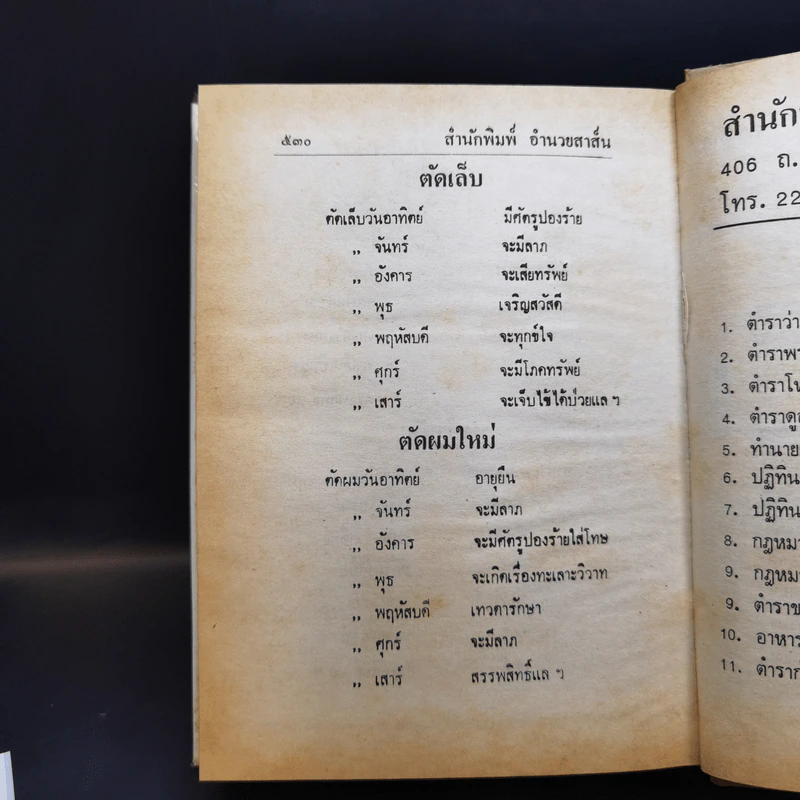 ๕๓๐ สำนักพิมพ์ อำนวยสาส์น
ตัดเล็บ
ตัดเล็บวันอาทิตย์ มีศัตรูปองร้าย
,, จันทร์ จะมีลาภ
,, อังคาร จะเสียทรัพย์
,, พุธ เจริญสวัสดี
,, พฤหัสบดี จะทุกข์ใจ
,, ศุกร์ จะมีโภคทรัพย์
,, เสาร์ จะเจ็บไข้ได้ป่วยแล ฯ
ตัดผมใหม่
ตัดผมวันอาทิตย์ อายุยืน
,, จันทร์ จะมีลาภ
,, อังคาร จะมีศัตรูปองร้ายใส่โทษ
,, พุธ จะเกิดเรื่องทะเลาะวิวาท
,, พฤหัสบดี เทวดารักษา
,, ศุกร์ จะมีลาภ
,, เสาร์ สรรพสิทธิ์แล ฯ
สำนัก
406 ถ.
โทร. 22
1. ตำราว่า
2. ตำราพร
3. ตำราโห
4. ตำราดู
5. ทำนาย
6. ปฏิทิน
7. ปฏิทิน
8. กฎหมา
9. กฎหมา
9. ตำราข
10. อาหาร
11. ตำราก